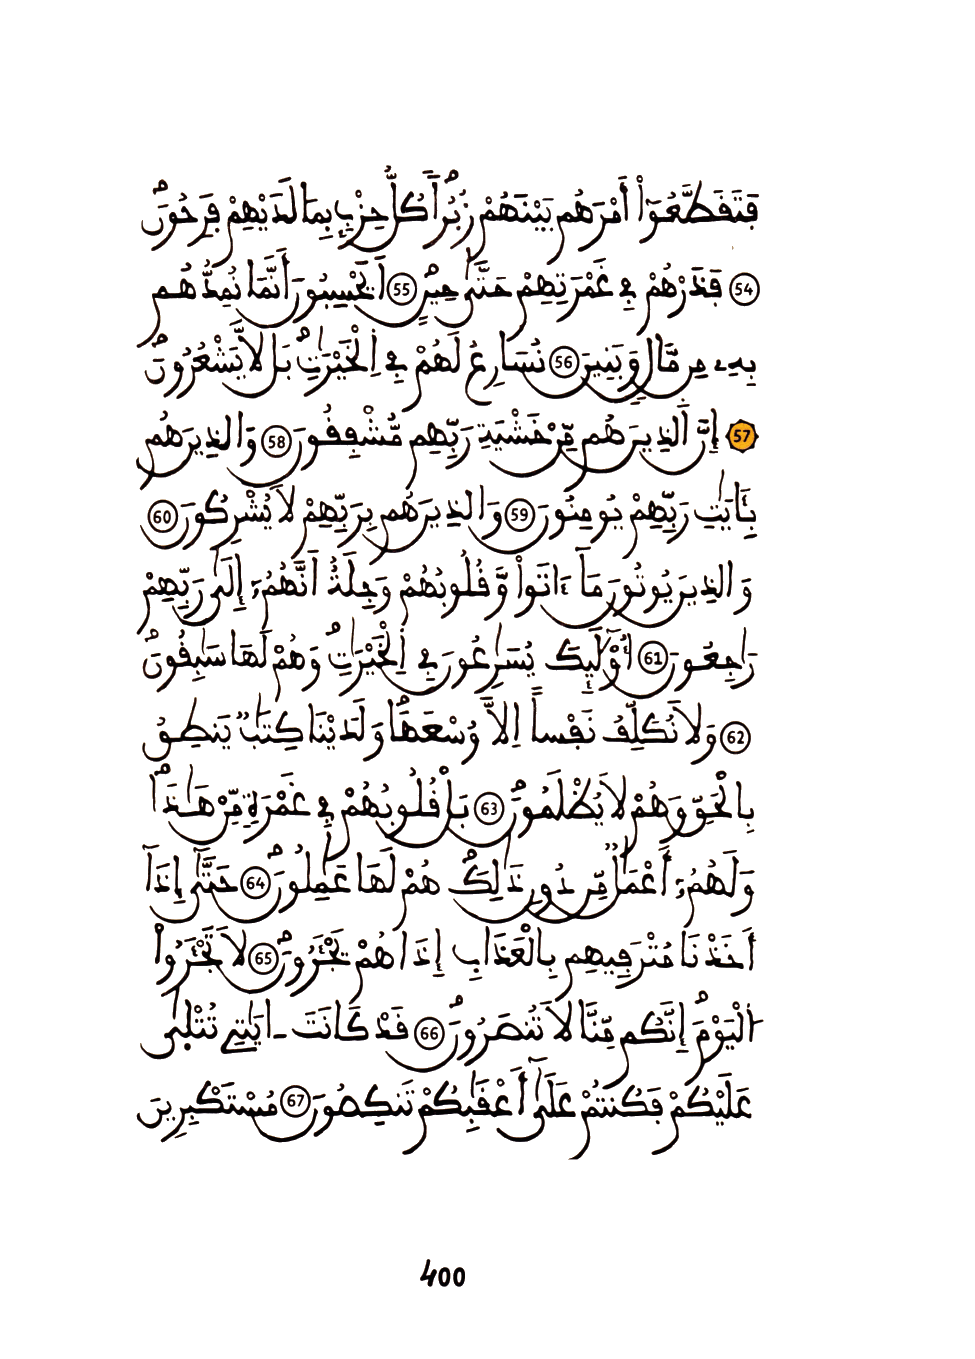 فَتَقَطَّعُوٓاْ أَمْرَهُم بَيْنَهُمْ زُبُراٗ كُلُّ حِزْبِۢ بِمَا لَدَيْهِمْ فَرِحُونَۖ
54 فَذَرْهُمْ فِے غَمْرَتِهِمْ حَتَّىٰ حِينٍۖ 55 اَيَحْسِبُونَ أَنَّمَا نُمِدُّهُم
بِهِۦ مِن مَّالٖ وَبَنِينَ 56 نُسَارِعُ لَهُمْ فِے اِ۬لْخَيْرَٰتِۖ بَل لَّا يَشْعُرُونَۖ
57 إِنَّ اَ۬لذِينَ هُم مِّنْ خَشْيَةِ رَبِّهِم مُّشْفِقُونَ 58 وَالذِينَ هُم
بِـَٔايَٰتِ رَبِّهِمْ يُومِنُونَ 59 وَالذِينَ هُم بِرَبِّهِمْ لَا يُشْرِكُونَ 60
وَالذِينَ يُوتُونَ مَآ ءَاتَواْ وَّقُلُوبُهُمْ وَجِلَةٌ اَنَّهُمُۥٓ إِلَىٰ رَبِّهِمْ
رَٰجِعُونَ 61 أُوْلَٰٓئِكَ يُسَٰرِعُونَ فِے اِ۬لْخَيْرَٰتِۖ وَهُمْ لَهَا سَٰبِقُونَۖ
62 وَلَا نُكَلِّفُ نَفْساً اِلَّا وُسْعَهَاۖ وَلَدَيْنَا كِتَٰبٞ يَنطِقُ
بِالْحَقِّ وَهُمْ لَا يُظْلَمُونَۖ 63 بَلْ قُلُوبُهُمْ فِے غَمْرَةٖ مِّنْ هَٰذَاۖ
وَلَهُمُۥٓ أَعْمَٰلٞ مِّن دُونِ ذَٰلِكَۖ هُمْ لَهَا عَٰمِلُونَۖ 64 حَتَّىٰٓ إِذَآ
أَخَذْنَا مُتْرَفِيهِم بِالْعَذَابِ إِذَا هُمْ يَجْـَٔرُونَۖ 65 لَا تَجْـَٔرُواْ
اُ۬لْيَوْمَۖ إِنَّكُم مِّنَّا لَا تُنصَرُونَۖ 66 قَدْ كَانَتَ ـ ايَٰتِے تُتْلَىٰ
عَلَيْكُمْ فَكُنتُمْ عَلَىٰٓ أَعْقَٰبِكُمْ تَنكِصُونَ 67 مُسْتَكْبِرِينَ
400